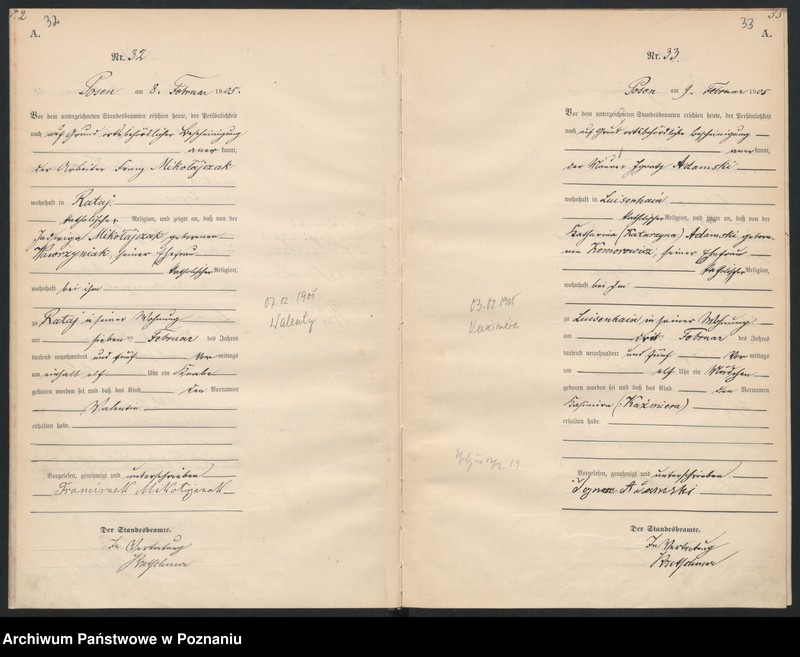 32
A.
Nr. 32
Posen am 8. Februar 1905.
Vor dem unterzeichneten Standesbeamten erschien heute, der Persönlichkeit
nach auf Grund ortsbehördlicher Bescheinigung
anerkannt,
der Arbeiter Franz Mikołajczak
wohnhaft in Rataj.
katholischer Religion, und zeigte an, daß von der
Jadwiga Mikołajczak geborenen
Wawrzyniak, seiner Ehefrau
katholischer Religion,
wohnhaft bei ihm
zu Rataj in seiner Wohnung
am sieben ten Februar des Jahres
tausend neunhundert und fünf Vor mittags
um einhalb elf Uhr ein Knabe
geboren worden sei und daß das Kind den Vornamen
Valentin
erhalten habe.
Vorgelesen, genehmigt und unterschrieben
Franciszek Mikołajczak
Der Standesbeamte.
In Vertretung
07.02 1905
Walenty
33
35
A.
Nr. 33.
Posen am 9. Februar 1905
Vor dem unterzeichneten Standesbeamten erschien heute, der Persönlichkeit
nach auf Grund ortsbehördlicher Bescheinigung
anerkannt,
der Maurer Ignatz Adamski
wohnhaft in Luisenhain
katholischer Religion, und zeigte an, daß von der
Katharina (Katarzyna) Adamski gebore-
nen Komorowicz, seiner Ehefrau
katholischer Religion,
wohnhaft bei ihm
zu Luisenhain in seiner Wohnung
am drit ten Februar des Jahres
tausend neunhundert und fünf Vor mittags
um elf Uhr ein Mädchen
geboren worden sei und daß das Kind den Vornamen
Kasimira (Kaźmiera)
erhalten habe.
Vorgelesen, genehmigt und unterschrieben
Ignac Adamski
Der Standesbeamte.
In Vertretung
03.02 1905
Kazimiera
Archiwum Państwowe w Poznaniu